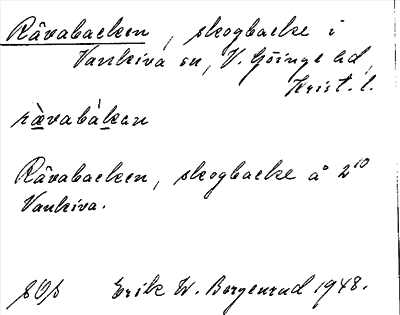 Råvabacken, skogbacke i
Vankiva sn, V. Göinge hd,
Krist. l.
ràvabákan
Råvabacken, skogbacke å 2¹⁰
Vankiva.
Erik W. Borgenrud 1948.